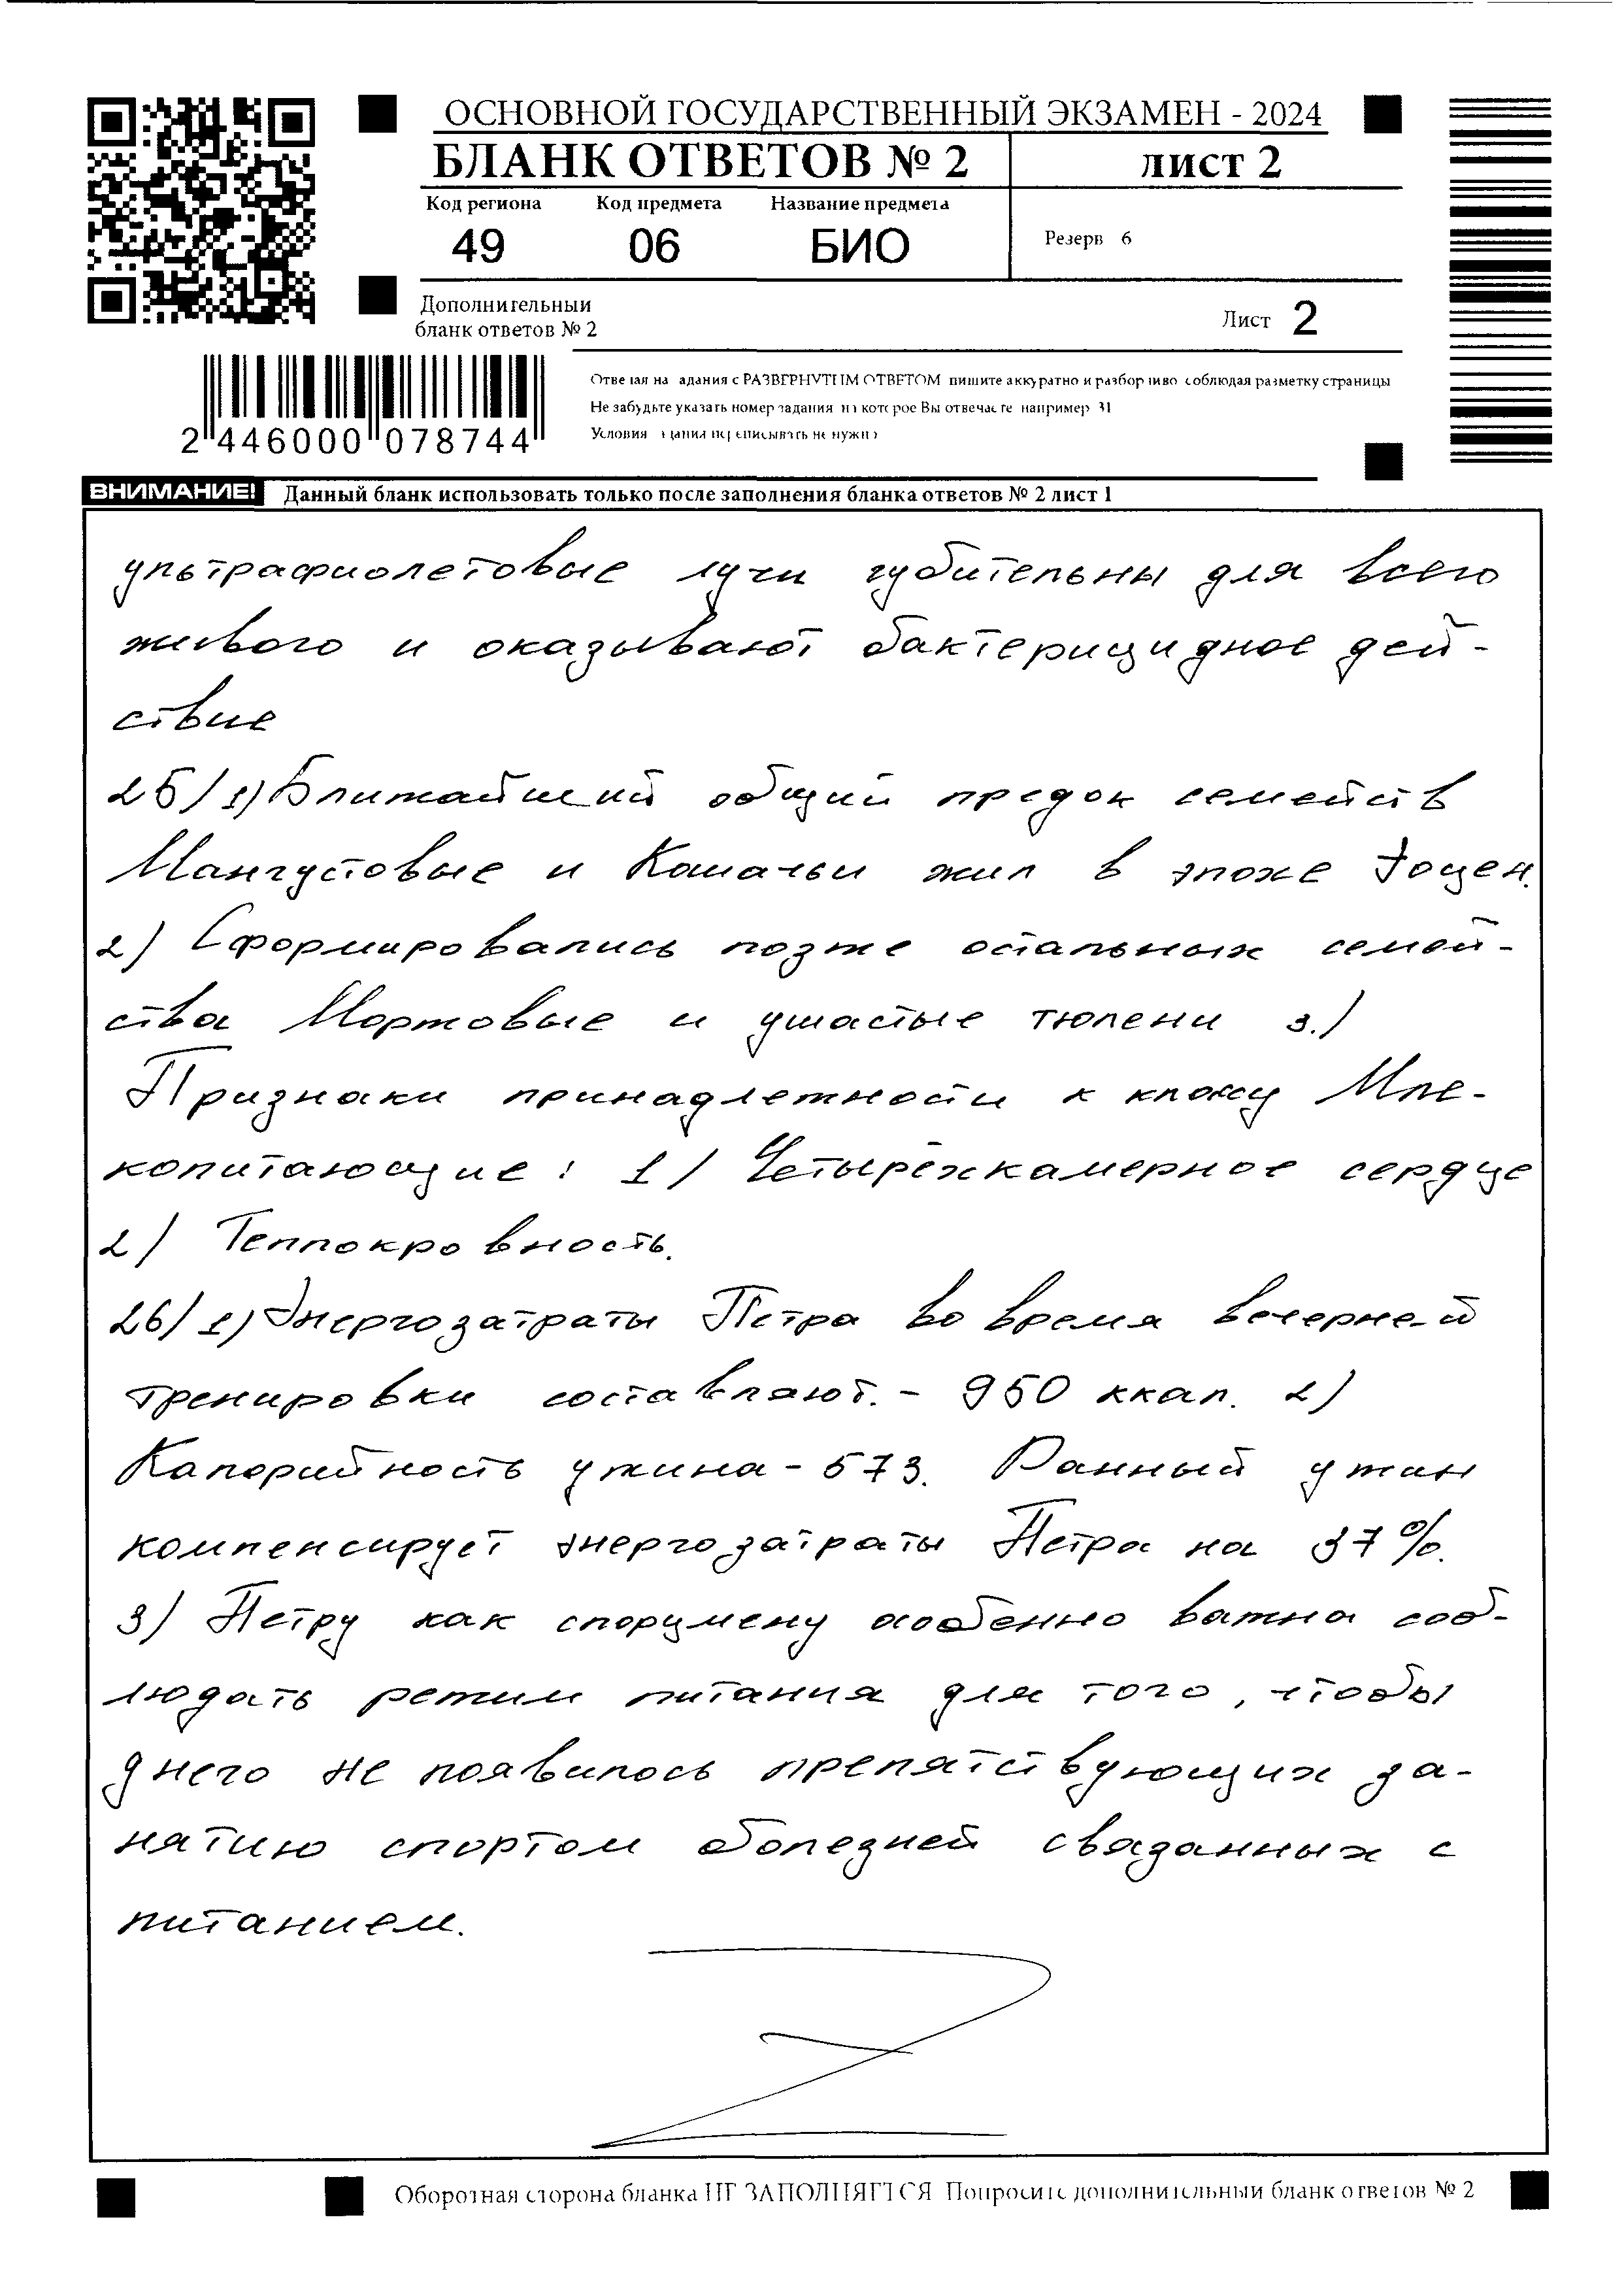 ОСНОВНОЙ ГОСУДАРСТВЕННЫЙ ЭКЗАМЕН - 2024
БЛАНК ОТВЕТОВ № 2
ЛИСТ 2
Код региона Код предмета Название предмета
49 06 БИО
Резерв 6
Дополнительный
бланк ответов № 2
Лист 2
2 446000 078744
Отвечая на задания с РАЗВЕРНУТЫМ ОТВЕТОМ пишите аккуратно и разборчиво соблюдая разметку страницы
Не забудьте указать номер задания на которое Вы отвечаете например 31
Условия задания переписывать не нужно
ВНИМАНИЕ! Данный бланк использовать только после заполнения бланка ответов № 2 лист 1
ультрафиолетовые лучи губительны для всего
живого и оказывают бактерицидное дей-
ствие
25/ 1) Ближайший общий предок семейств
Мангустовые и Кошачьи жил в эпохе Эоцен.
2) Сформировались позже остальных семей-
ства Моржовые и ушастые тюлени 3.)
Признаки принадлежности к классу Мле-
копитающие: 1) Четырёхкамерное сердце
2) Теплокровность.
26/ 1) Энергозатраты Петра во время вечерне-й
тренировки составляют. - 950 ккал. 2)
Калорийность ужина - 573. Ранный ужин
компенсирует энергозатраты Петра на 37%.
3) Петру как спорцмену особенно важна соб-
людать режим питания для того, чтобы
унего не появилось препятствующих за-
нятию спортом болезней связанных с
питанием.
Оборотная сторона бланка НЕ ЗАПОЛНЯЕТСЯ Попросите дополнительный бланк ответов № 2